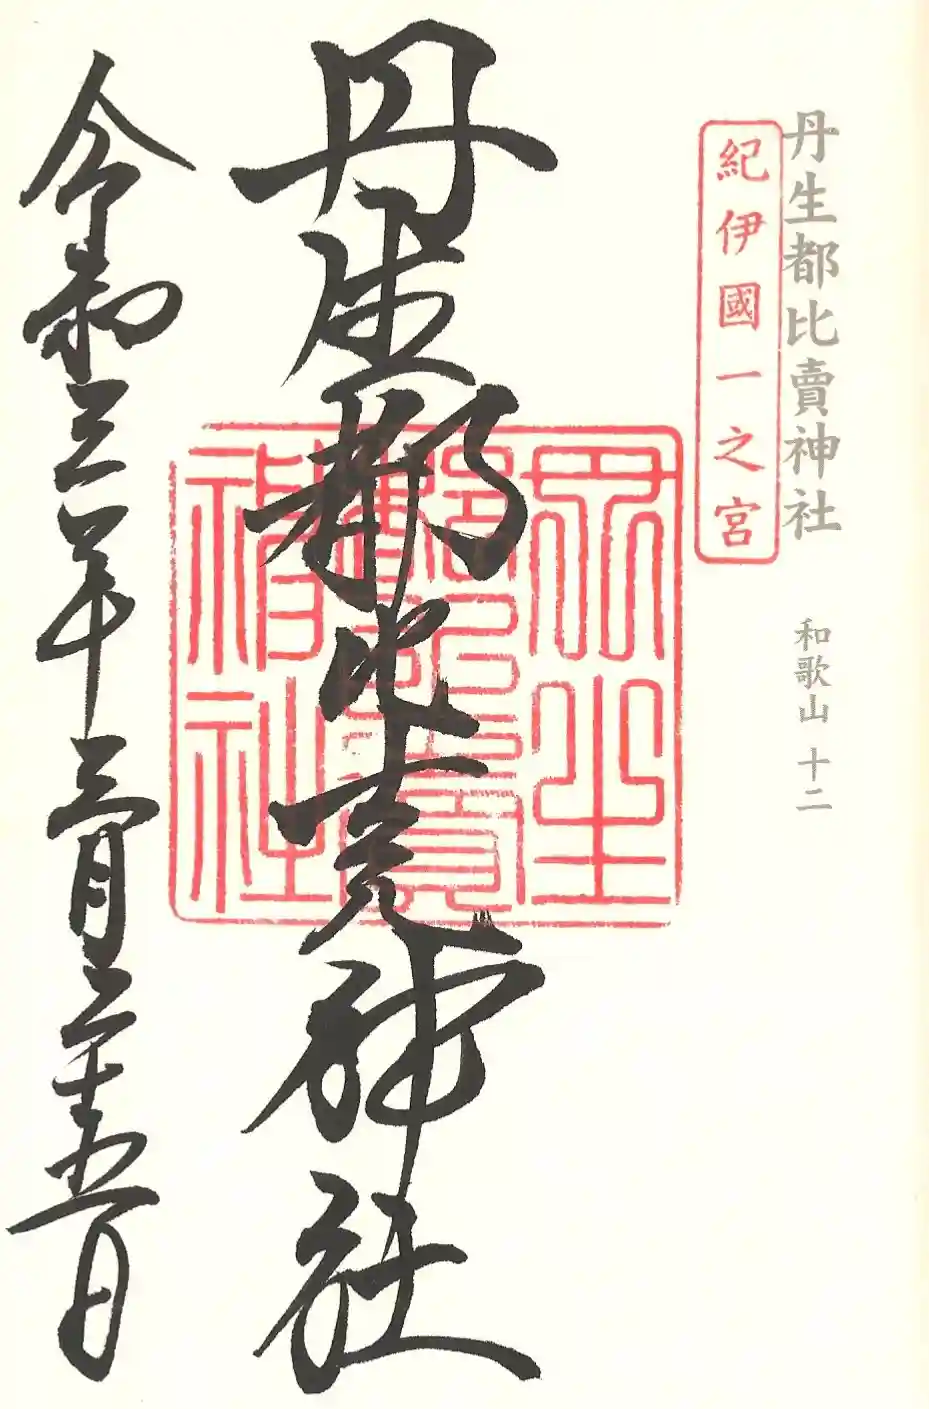 丹生都比賣神社　和歌山 十二
紀伊國一之宮
丹生都比売神社
丹生
都比賣
神社
令和三年三月二十五日